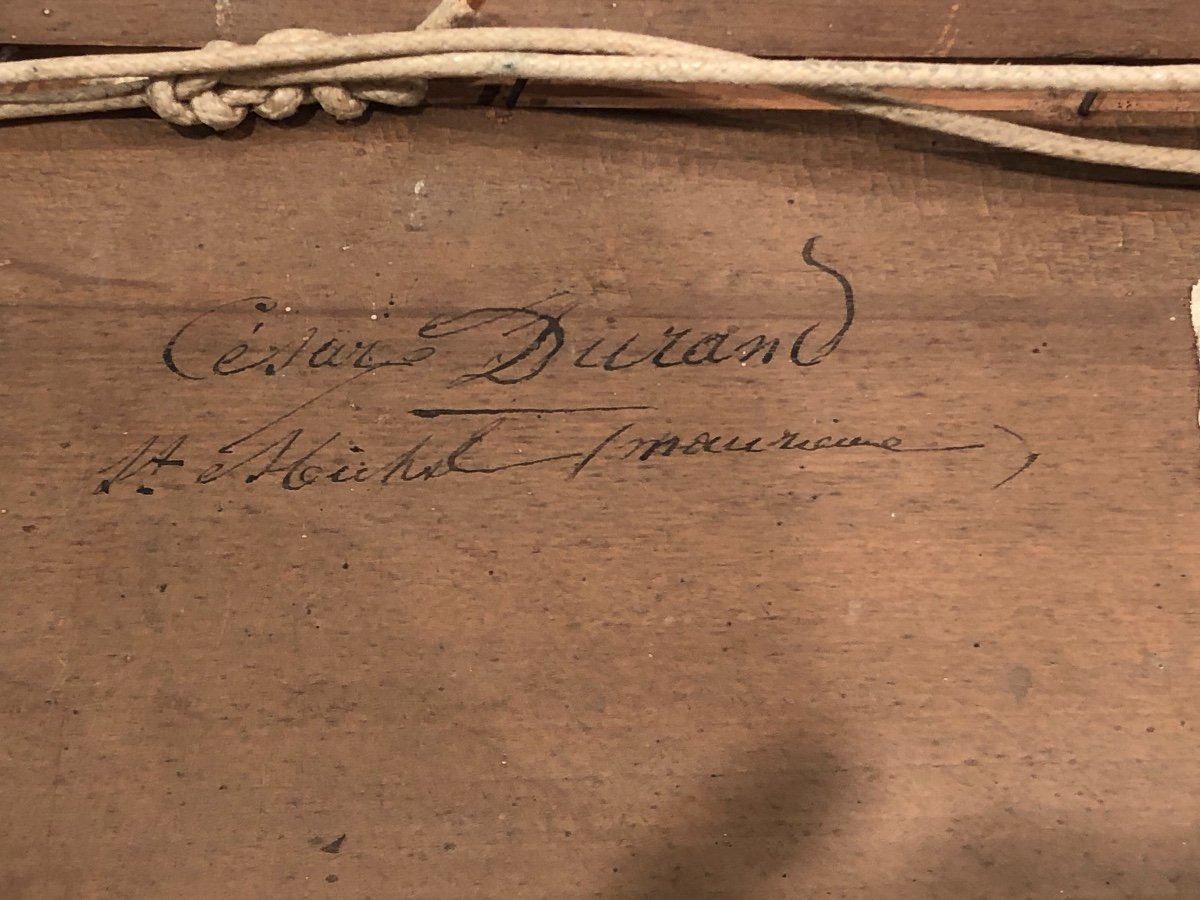 César Durand
St Michel (maurienne)